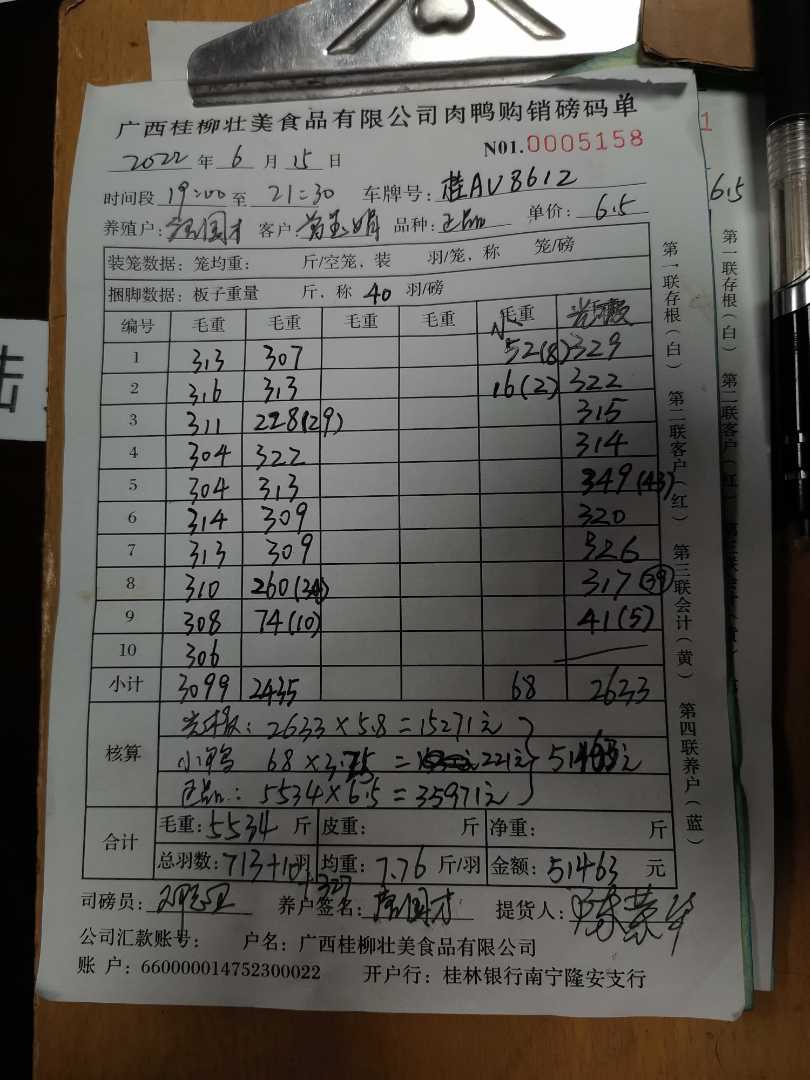 广西桂柳壮美食品有限公司肉鸭购销磅码单
N01.0005158
2022 年 6 月 15 日
时间段 19:00 至 21:30 车牌号: 桂AV8612
养殖户: 国才 客户: 娟 品种: 正品 单价: 6.5
装笼数据: 笼均重: 斤/空笼, 装 羽/笼, 称 笼/磅
捆脚数据: 板子重量 斤, 称 40 羽/磅
编号 毛重 毛重 毛重 毛重 毛重
1 313 307 52(8) 329
2 316 313 16(2) 322
3 311 228(29) 315
4 304 322 314
5 304 313 349(43)
6 314 309 320
7 313 309 326
8 310 260(34) 317(39)
9 308 74(10) 41(5)
10 306
小计 3099 2435 68 2633
核算
2633×5.8=15271元
小鸭 68×3.25= 221元
正品: 5534×6.5=35971元
51463元
合计
毛重: 5534 斤 皮重: 斤 净重: 斤
总羽数: 713+10 羽 +327 均重: 7.76 斤/羽 金额: 51463 元
司磅员: 养户签名: 国才 提货人:
公司汇款账号: 户名: 广西桂柳壮美食品有限公司
账 户: 660000014752300022 开户行: 桂林银行南宁隆安支行
第一联存根(白) 第二联客户(红) 第三联会计(黄) 第四联养户(蓝)
1
6.5
第一联存根(白) 第二联客户(红)